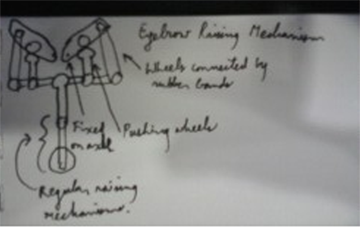 Eyebrow Raising Mechanism
Wheels connected by
rubber bands
Fixed
on axle
Pushing wheels
Regular raising
mechanisms.